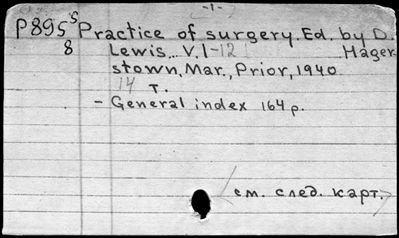 -1-
P895 S Practice of surgery. Ed. by D.
8 Lewis... V. 1-12 Hager
stown, Mar., Prior, 1940.
14 т.
- General index 164 p.
см. след. карт.